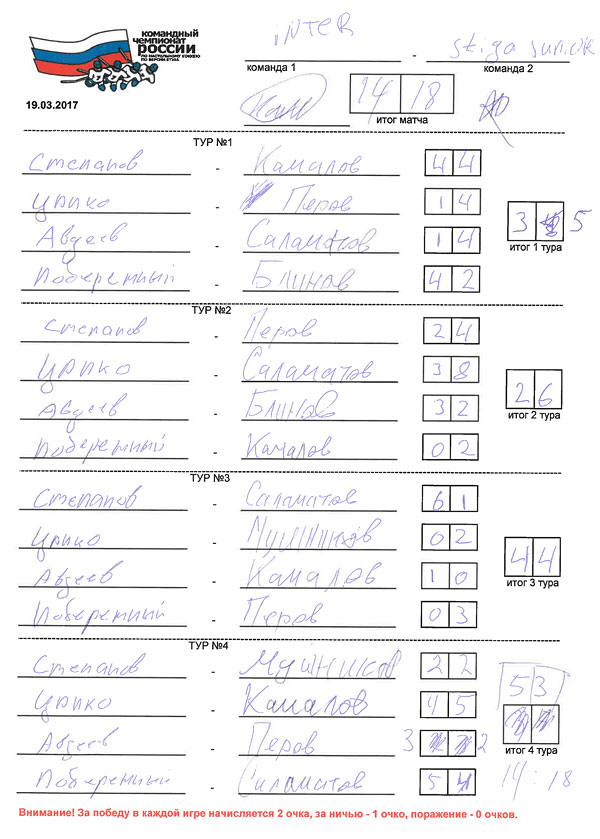 КОМАНДНЫЙ
ЧЕМПИОНАТ
РОССИИ
ПО НАСТОЛЬНОМУ ХОККЕЮ
ПО ВЕРСИИ STIGA
INTER - stiga
команда 1 команда 2
19.03.2017
14 18
итог матча
ТУР №1
Степанов - Камалов 4 4
Црико - Перов 1 4
Авдеев - Саламатов 1 4
Поберемный - Блинов 4 2
3 5
итог 1 тура
ТУР №2
Степанов - Перов 2 4
Црико - Саламатов 3 8
Авдеев - Блинов 3 2
Поберемный - Камалов 0 2
2 6
итог 2 тура
ТУР №3
Степанов - Саламатов 6 1
Црико - Мушников 0 2
Авдеев - Камалов 1 0
Поберемный - Перов 0 3
4 4
итог 3 тура
ТУР №4
Степанов - Мушников 2 2
Црико - Камалов 4 5
Авдеев - Перов 3 2
Поберемный - Саламатов 5 4
5 3
итог 4 тура
14 : 18
Внимание! За победу в каждой игре начисляется 2 очка, за ничью - 1 очко, поражение - 0 очков.